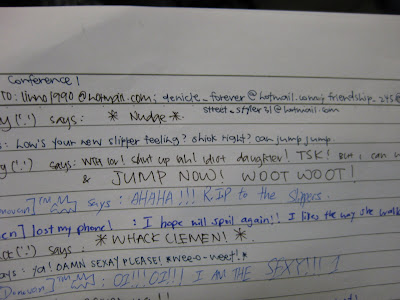 Conference 1
TO: limo1990@hotmail.com; yenicle_forever@hotmail.com; friendship_245@
street_styler31@hotmail.com
y('.') says: * Nudge *.
: how's your new slipper feeling? shiok right? can jump jump.
g('.') says: WTH lo! shut up lah! idiot daughter! TSK! But i can w
& JUMP NOW! WOOT WOOT!
Donovan] says: AHAHA!!! R.I.P to the slippers.
en] lost my phone! : I hope will spoil again!! I likes the way she walk
ot('.') says: * WHACK CLEMEN! *
ays: ya! DAMN SEXAY PLEASE! *wee-o-weet!*
Donovan] says: OI!!! OI!!! I AM THE SEXY!!! 1